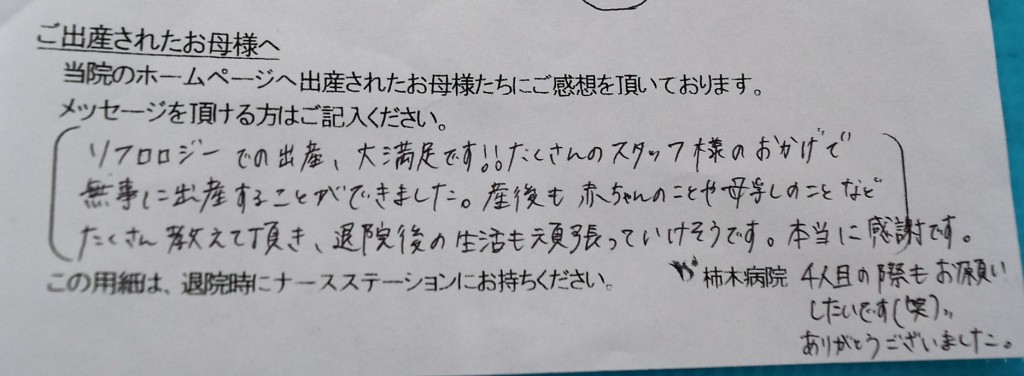 ご出産されたお母様へ
当院のホームページへ出産されたお母様たちにご感想を頂いております。
メッセージを頂ける方はご記入ください。
リフロロジーでの出産、大満足です!!たくさんのスタッフ様のおかげで
無事に出産することができました。産後も赤ちゃんのことや母乳のことなど
たくさん教えて頂き、退院後の生活も頑張っていけそうです。本当に感謝です。
この用紙は、退院時にナースステーションにお持ちください。
柿木病院
4人目の際もお願い
したいです(笑)
ありがとうございました。